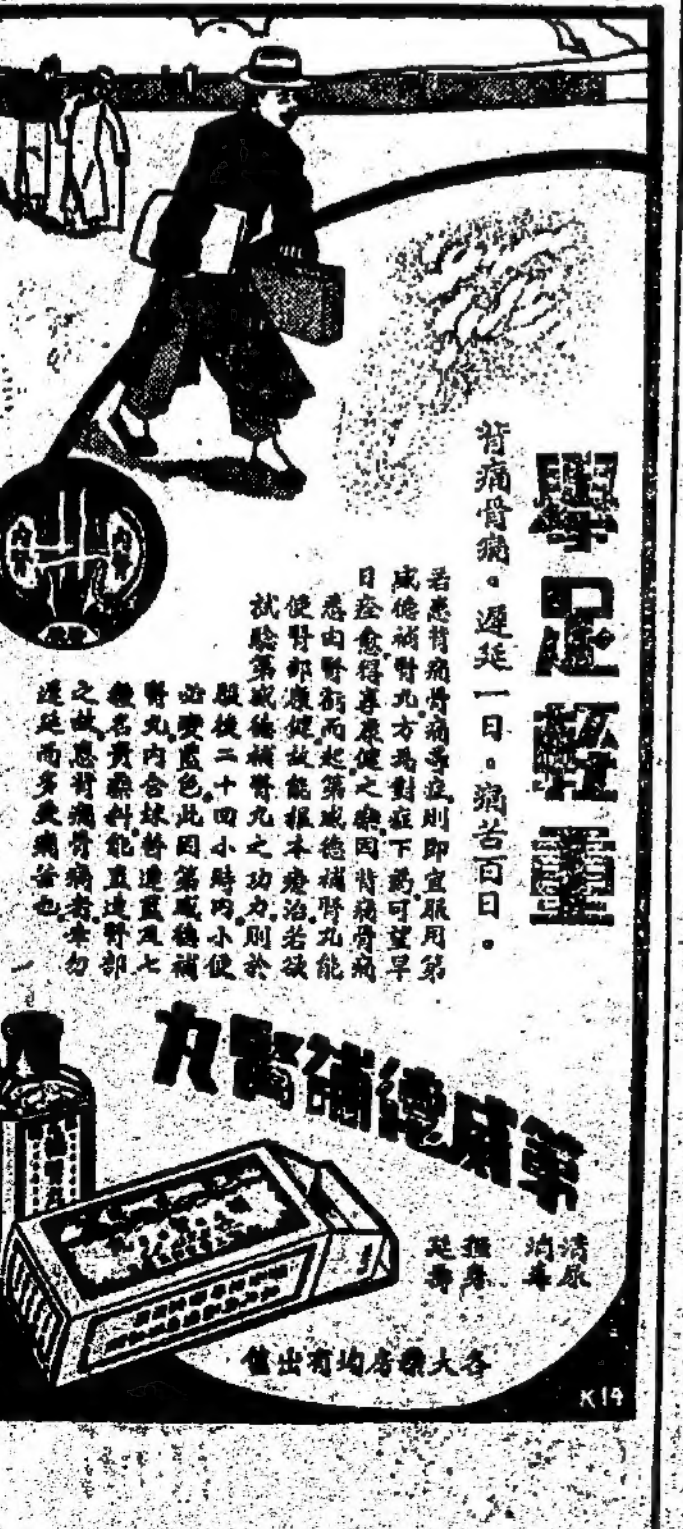 舉足輕重
背痛骨痛。遲延一日。痛苦百日。
若患背痛骨痛等症則即宜服用第
威德補腎丸方為對症下药可望早
日痊愈得享康健之樂因背痛骨痛
悉由腎衰而起第威德補腎丸能
使腎部康健故能根本療治若欲
試驗第威德補腎丸之功力則於
服後二十四小時內小便
必變藍色此因第威德補
腎丸內含
種名貴藥料能直達腎部
之故患背痛骨痛者幸勿
遲延而多受痛苦也
內腎
內腎
第威德補腎丸
清尿
消毒
強身
延壽
各大藥房均有出售
K19